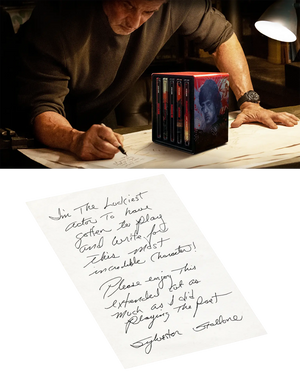 I'm The Luckiest
actor To have
gotten to play
and write for
this most
incredible character!
Please enjoy This
extended cut as
much as I did
playing The Part
Sylvester Stallone